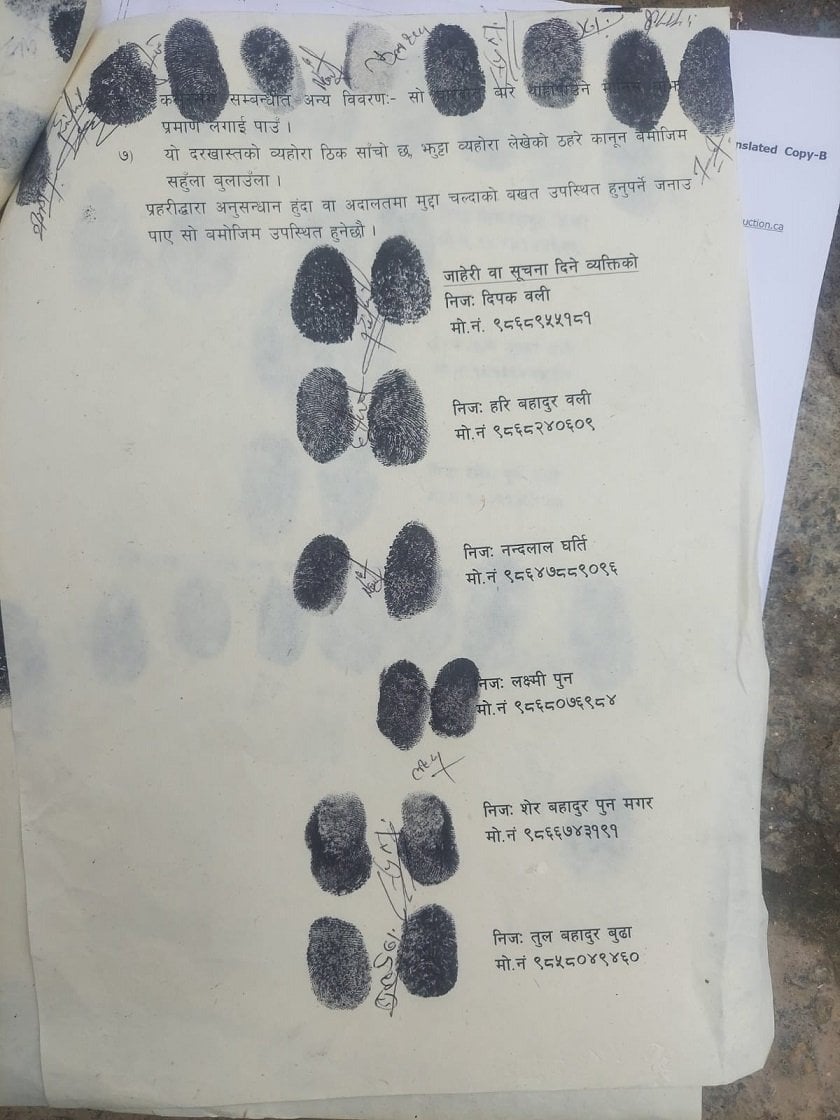 सम्बन्धित अन्य विवरणः- सो बारे
प्रमाण लगाई पाउँ ।
nslated Copy-B
७) यो दरखास्तको व्यहोरा ठिक साँचो छ, झुट्टा व्यहोरा लेखेको ठहरे कानून बमोजिम
सहुँला बुझाउँला ।
प्रहरीद्वारा अनुसन्धान हुंदा वा अदालतमा मुद्दा चल्दाको बखत उपस्थित हुनुपर्ने जनाउ
uction.ca
पाए सो बमोजिम उपस्थित हुनेछौ ।
जाहेरी वा सूचना दिने व्यक्तिको
निजः दिपक वली
मो.नं. ९८६८९५५१८१
निजः हरि बहादुर वली
मो.नं ९८६८२४०६०९
निजः नन्दलाल घर्ति
मो.नं ९८६४७८८९०९६
निजः लक्ष्मी पुन
मो.नं ९८६८०७६९८४
निजः शेर बहादुर पुन मगर
मो.नं ९८६६७४३१९१
निजः तुल बहादुर बुढा
मो.नं ९८५८०४९४६०